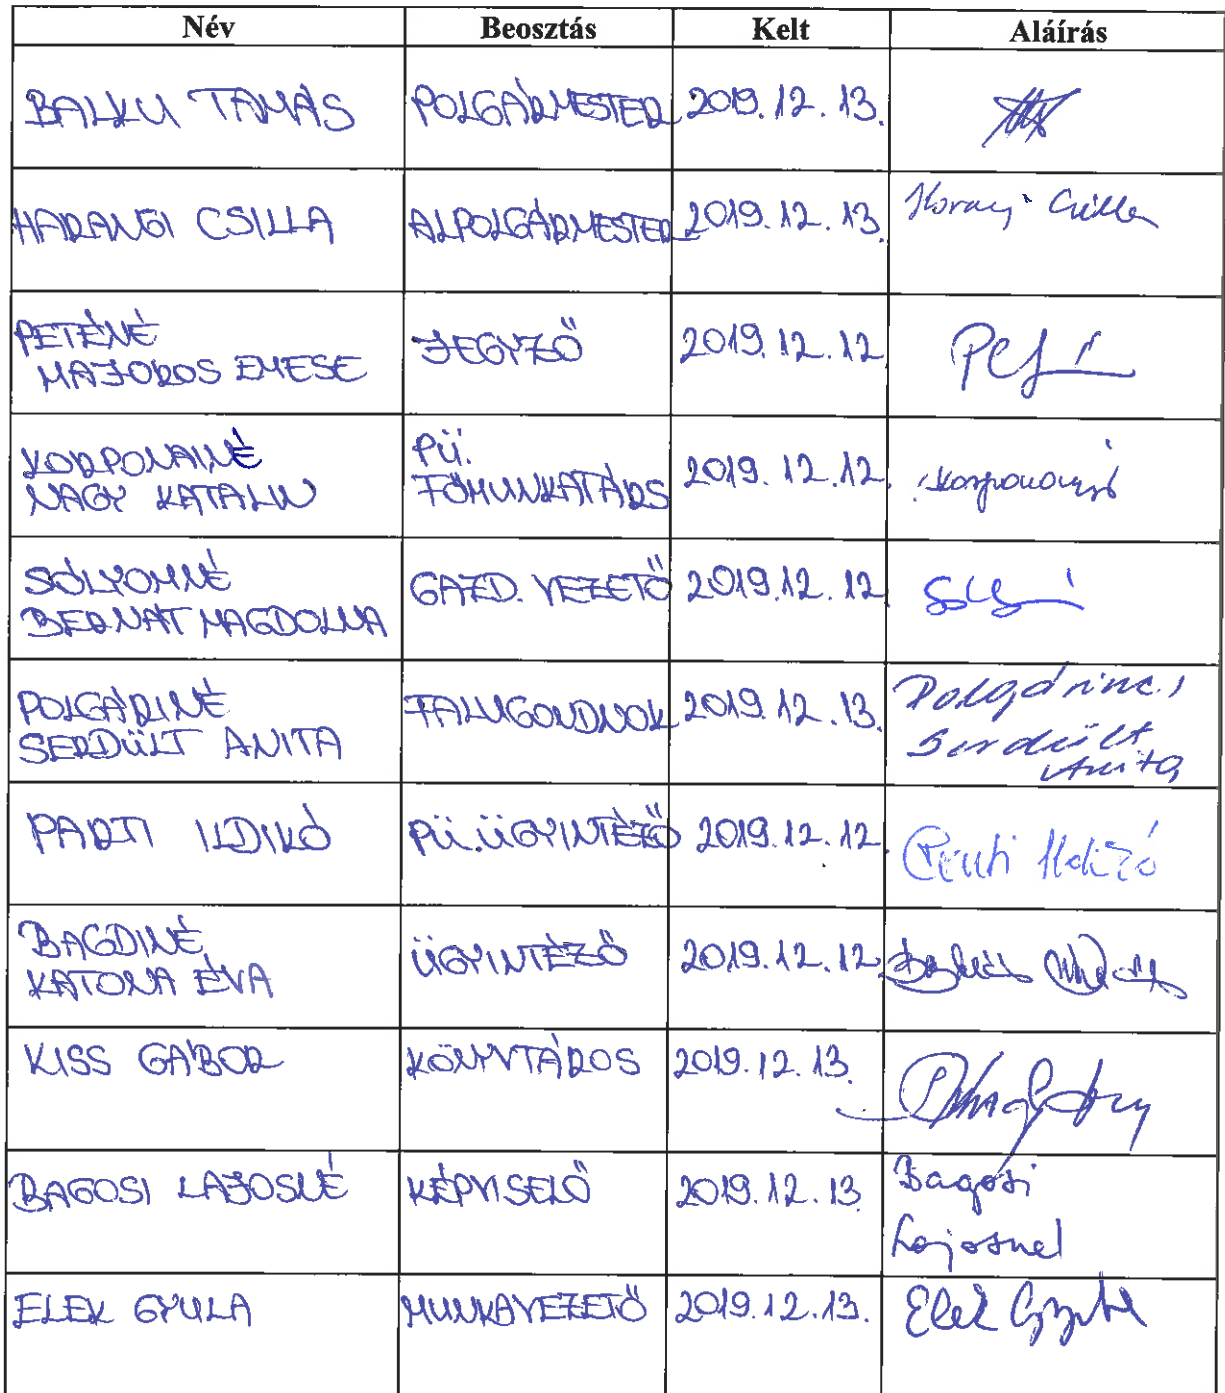 Név Beosztás Kelt Aláírás
BALKU TAMÁS POLGÁRMESTER 2019.12.13.
HARANGI CSILLA ALPOLGÁRMESTER 2019.12.13. Csilla
PETÉNÉ
MAJOROS EMESE JEGYZŐ 2019.12.12
KORPONAINÉ
NAGY KATALIN PÜ.
FŐMUNKATÁRS 2019.12.12.
SÓLYOMNÉ
BERNÁT MAGDOLNA GAZD. VEZETŐ 2019.12.12
POLGÁRINÉ
SERDÜLT ANITA FALUGONDNOK 2019.12.13. Polgáriné
Serdült
Anita
PARTI ILDIKÓ PÜ.ÜGYINTÉZŐ 2019.12.12. Parti Ildikó
BAGDINÉ
KATONA ÉVA ÜGYINTÉZŐ 2019.12.12
KISS GÁBOR KÖNYVTÁROS 2019.12.13.
BAGOSI LAJOSNÉ KÉPVISELŐ 2019.12.13. Bagosi
Lajosné
ELEK GYULA MUNKAVEZETŐ 2019.12.13. Elek Gyula